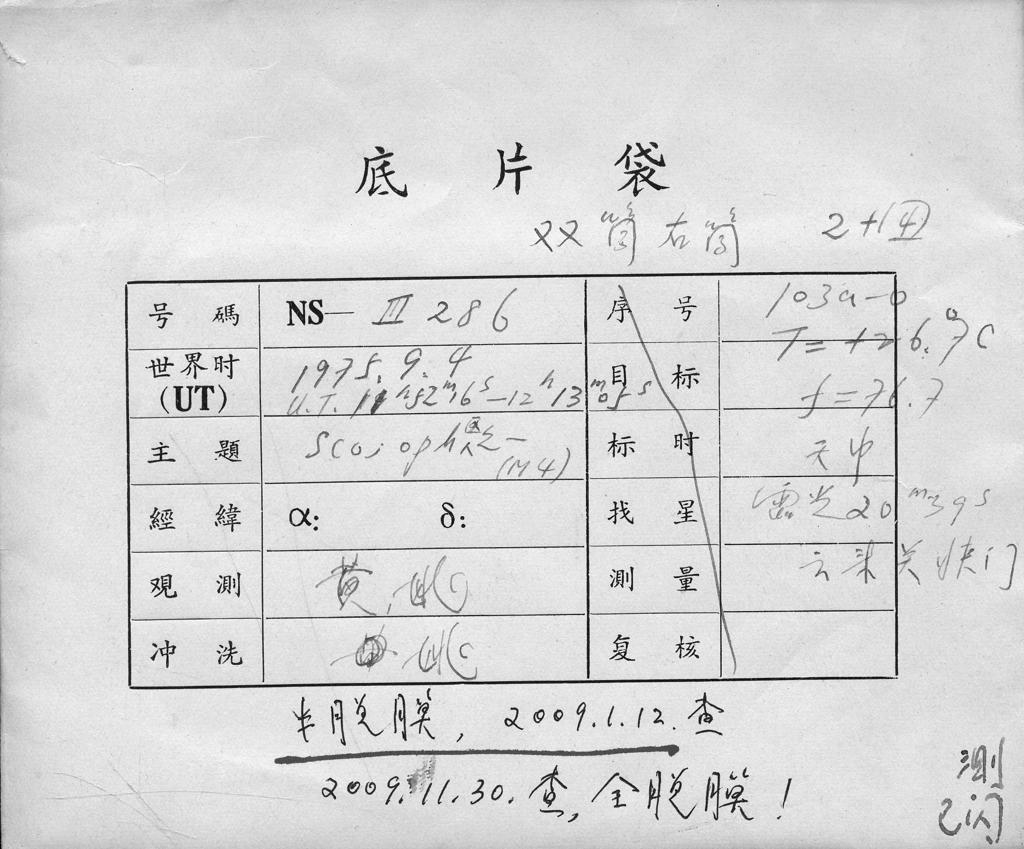 底片袋
双筒右筒
号碼 NS—Ⅲ286 序号 103a-0
世界时 1975.9.4 T=+26.7°C
(UT) U.T. 11ʰ52ᵐ16ˢ—12ʰ13ᵐ05ˢ 目标 f=76.7
主題 (M4) 标时 天中
經緯 α: δ: 找星 露光20ᵐ39ˢ
观測 黄, 测量 云来关快门
冲洗 复核
半脱膜, 2009.1.12.查
2009.11.30.查, 全脱膜!
测
已闪